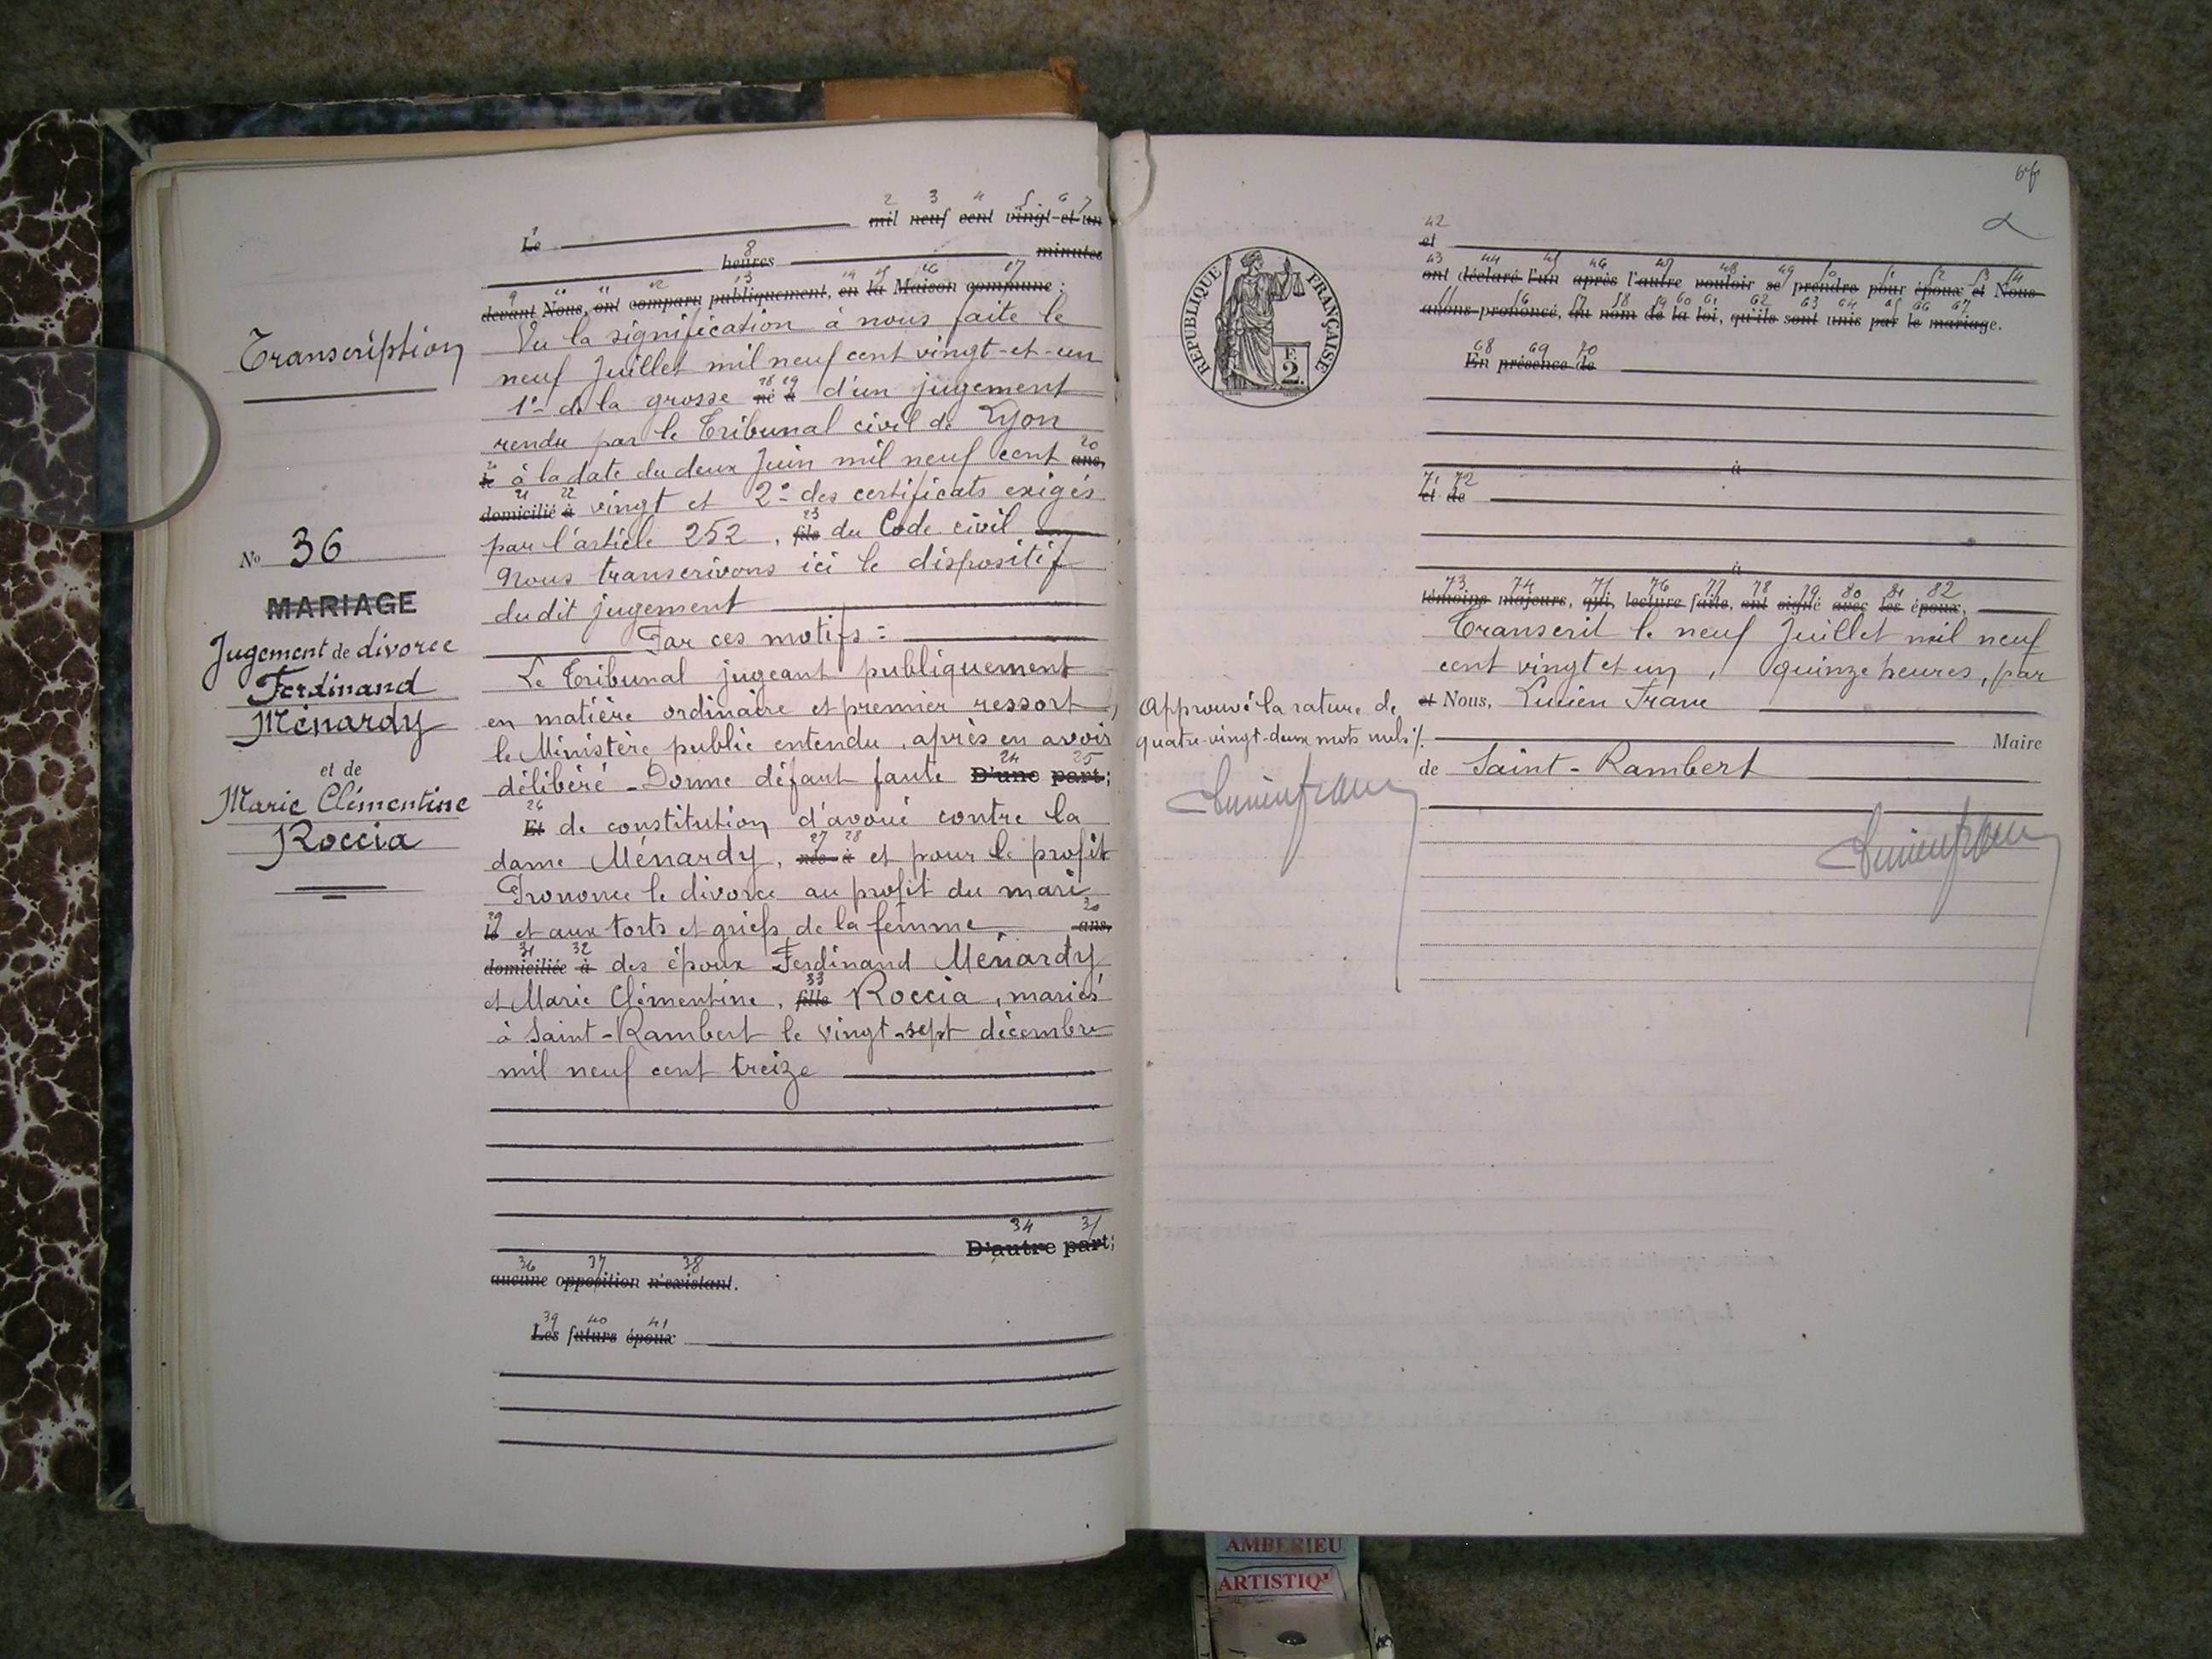 Transcription
N° 36
MARIAGE
Jugement de divorce
Ferdinand
Ménardy
et de
Marie Clémentine
Roccia
2 3 4 5 6 7
1 Le mil neuf cent vingt-et-un
8
heures minutes
devant Nous, ont comparu publiquement, en la Maison commune :
Vu la signification à nous faite le
neuf Juillet mil neuf cent vingt-et-un
18 19
1° de la grosse né à d'un jugement
rendu par le Tribunal civil de Lyon
20
le à la date du deux Juin mil neuf cent ans,
21 22
domicilié à vingt et 2° des certificats exigés
23
par l'article 252, fils du Code civil
Nous transcrivons ici le dispositif
du dit jugement
Par ces motifs =
Le Tribunal jugeant publiquement
en matière ordinaire et premier ressort,
le Ministère public entendu, après en avoir
24 25
délibéré - Donne défaut faute D'une part;
26
Et de constitution d'avoué contre la
27 28
dame Ménardy, née à et pour le profit
Prononce le divorce au profit du mari
29 30
le et aux torts et griefs de la femme, ans,
31 32
domiciliée à des époux Ferdinand Ménardy
33
et Marie Clémentine, fille Roccia, mariés
à Saint-Rambert le vingt-sept décembre
mil neuf cent treize
34 35
D'autre part;
36 37 38
aucune opposition n'existant.
39 40 41
Les futurs époux
RÉPUBLIQUE FRANÇAISE
F.
2.
Approuvé la rature de
quatre-vingt-deux mots nuls %.
Lucien Franc
42
et
43 44 45 46 47 48 49 50 51 52 53 54
ont déclaré l'un après l'autre vouloir se prendre pour époux et Nous
55 56 57 58 59 60 61 62 63 64 65 66 67
avons prononcé, au nom de la loi, qu'ils sont unis par le mariage.
68 69 70
En présence de
à
71 72
et de
à
73 74 75 76 77 78 79 80 81 82
témoins majeurs, qui, lecture faite, ont signé avec les époux,
Transcrit le neuf Juillet mil neuf
cent vingt et un, quinze heures, par
et Nous, Lucien Franc
Maire
de Saint-Rambert
Lucien Franc
AMBERIEU
ARTISTIQ